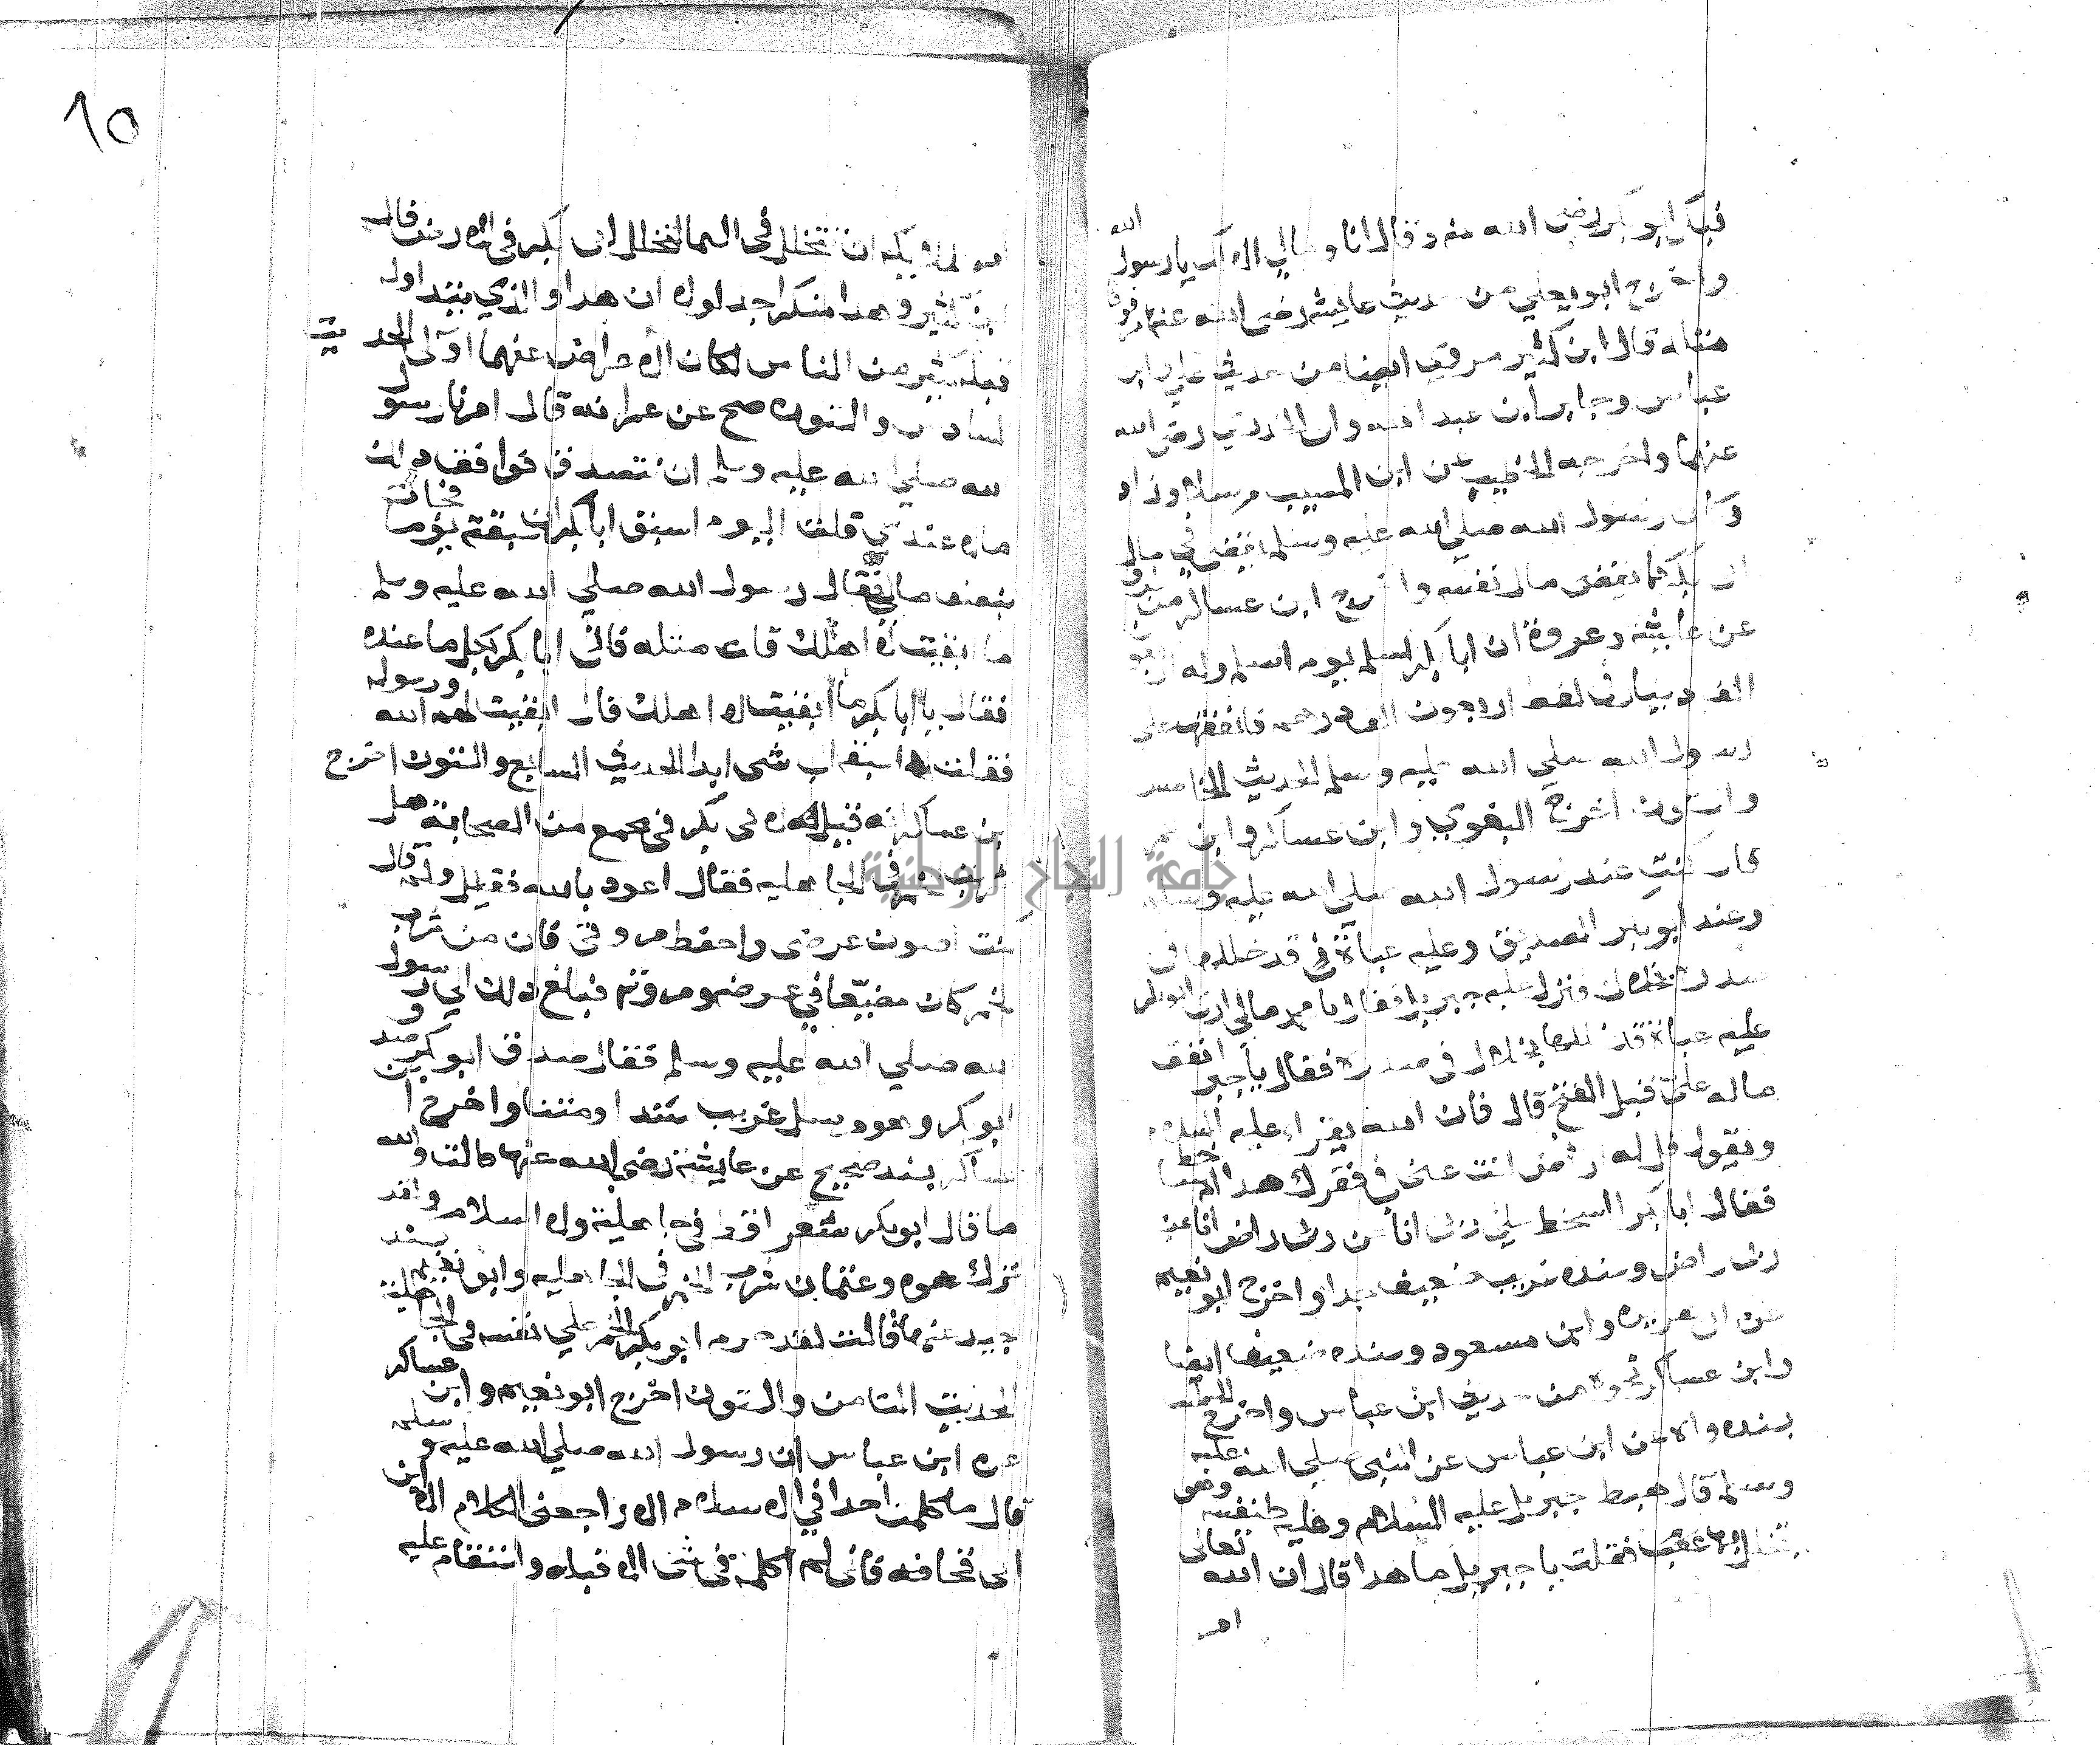 فبكى ابو بكر رضى الله عنه وقال انا ومالي الا لك يا رسول الله
واخرج ابو يعلي من حديث عايشه رضى الله عنها مرفوعا
مثله قال ابن كثير مروى ايضا من حديث علي وابن
عباس وجابر ابن عبد الله وابى الخدري رضى الله
عنهما واخرجه الخطيب عن ابن المسيب مرسلا وزاد
وكان رسول الله صلي الله عليه وسلم يقضى في مال
ابى بكر كما يقضى مال نفسه واخرج ابن عساكر من
عن عايشة وعروة ان ابا بكر اسلم يوم اسلم وله
الف دينار في لفظ اربعون الف درهم فانفقها على
رسول الله صلي الله عليه وسلم الحديث الخامس
والستون اخرج البغوي وابن عساكر وابن عمر
قال كنت عند رسول الله صلي الله عليه وسلم
وعند ابو بكر الصديق وعليه عباة قد خللها فى
صدره بخلال فنزل عليه جبريل فقال يا محمد مالي ارى ابو بكر
عليه عباة قد خللها بخلال فى صدره فقال يا جبريل انفق
ماله علي قبل الفتح قال فان الله يقراء عليه السلام
ويقول قل له اراض انت عنى في فقرك هذا ام ساخط
فقال ابا بكر السخط علي ربى انا عن ربى راض انا عن
ربى راض وسنده غريب ضعيف جدا واخرج ابو نعيم
عن ابى هريره وابن مسعود وسنده ضعيف ايضا
وابن عساكر نحوه من حديث ابن عباس واخرج
بسنده والا عن ابن عباس عن النبى صلي الله عليه
وسلم قال هبط جبريل عليه السلام وعليه طنفسه وهو
متخلل بها فقلت يا جبريل ما هذا قال ان الله تعالى
امر
امر الملايكه ان تتخلل فى السما لتخلل ابى بكر فى الارض قال
ابن كثير وهذا منكر جدا ولولا ان هذا والذي يتداوله
قبله كثير من الناس لكان الاعراض عنهما اولى الحديث
السادس والستون صح عن عمر انه قال امرنا رسول
الله صلي الله عليه وسلم ان نتصدق فوافق ذلك
مالا عندي قلت اليوم اسبق ابا بكر ان سبقته يوما فجات
بنصف مالي فقال رسول الله صلي الله عليه وسلم
ما ابقيت لاهلك قلت مثله فاتى ابا بكر بكل ما عنده
فقال يا ابا بكر ما ابقيت لاهلك قال ابقيت لهم الله ورسوله
فقلت لا اسبقه الى شى ابدا الحديث السابع والستون اخرج
ابن عساكر انه قيل لابى بكر فى مجمع من الصحابة هل
شربت خمرا في الجاهليه فقال اعوذ بالله فقيل ولم قال
كنت اصون عرضى واحفظ مروتى فان من شرب
الخمر كان مضيعا في عرضه ومروته فبلغ ذلك الى رسول
الله صلي الله عليه وسلم فقال صدق ابو بكر صدق
ابو بكر وهو مرسل غريب سندا ومتنا واخرج ابن
عساكر بسند صحيح عن عايشة رضى الله عنها قالت والله
ما قال ابو بكر شعرا قط في جاهلية ولا اسلام ولقد
ترك هو وعثمان شرب الخمر في الجاهليه وابو نعيم بسند
جيد عنها قالت لقد حرم ابو بكر الخمر علي نفسه في الجاهلية
الحديث الثامن والستون اخرج ابو نعيم وابن عساكر
عن ابن عباس ان رسول الله صلي الله عليه وسلم
قال ما كلمت احدا في الاسلام الا راجعنى الكلام الا ابن
ابى قحافه فانى لم اكلمه فى شى الا قبله واستقام عليه
جامعة النجاح الوطنية
10